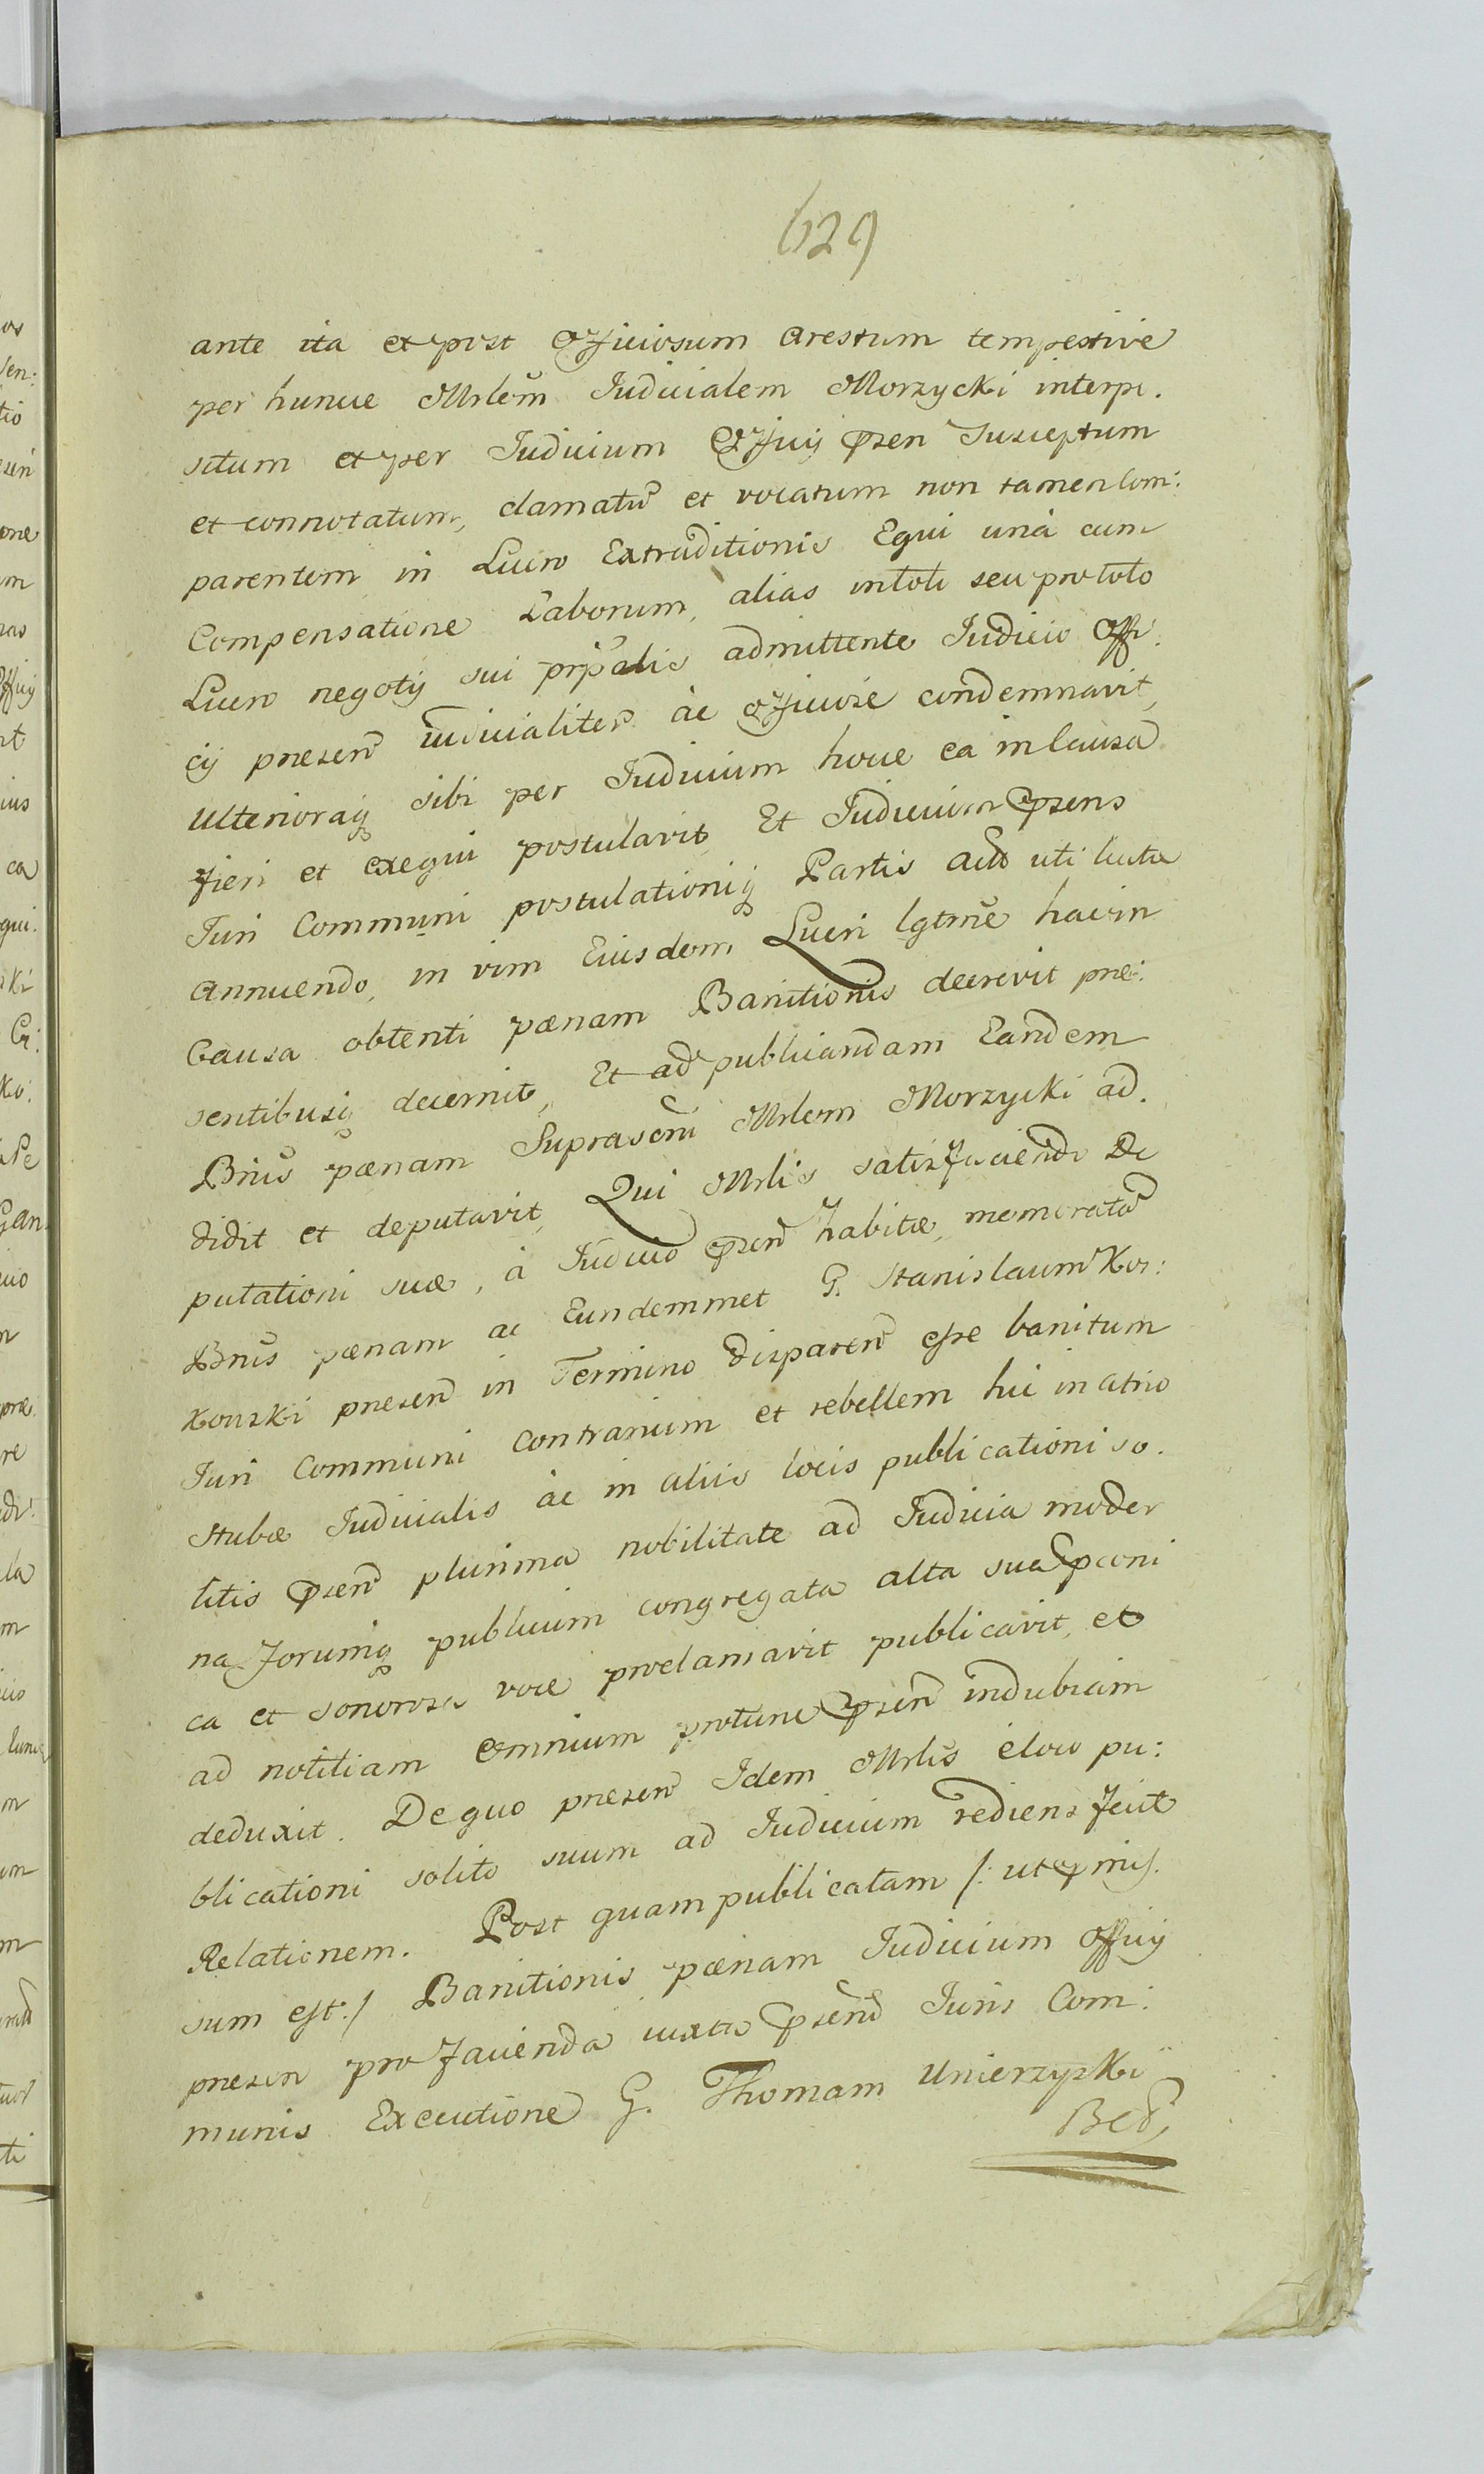 629
ante ita et post Officiosum Arestum tempestive
per hunce Mrlem Iudicialem Morzycki interpo.
situm et per Iudicium Officij pzen Susceptum
et connotatum, clamatu et vocatum non tamen Com:
parentem in Lucro Extraditionis Equi unà cum
Compensatione Laborum, alias in toto seu pro toto
Lucro negotij sui prpalis admittente Iudicio Offi:
cij presen iudicialiter ac officiose condemnavit,
Ulterioraq sibi per Iudicium hocce ea in Causa
fieri et exequi postulavit, Et Iudicium pzens
Iuri Communi postulationiq Partis Act uti Iustæ
annuendo, in vim Eiusdem Lucri lgtme hac in
Causa obtenti pænam Banitionis decrevit præ:
sentibusq decernit, Et ad publicandam Eandem
Bnis pænam Suprascrii Mrlem Morzycki ad.
didit et deputavit, Qui Mrlis satisfaciendo De
putationi suæ, à Iudicio pzen habitæ, memorata
Bnis pænam ac Eundemmet G. Stanislaum Kos:
kowski presen in Termino disparen esse banitum
Iuri Communi contrarium et rebellem hic in atrio
Stubæ Iudicialis ac in aliis locis publicationi so.
litis pzen plurima nobilitate ad Iudicia moder
na forumq publicum congregata alta sua pconi
ca et sonorosa voce proclamavit publicavit, et
ad notitiam omnium protunc pzen indubiam
deduxit. De quo presen Idem Mrlis é loco pu:
blicationi solito suum ad Iudicium rediens fecit
Relationem. Post quam publicatam /: ut pmis.
sum est :/ Banitionis pænam Iudicium Officij
presen pro facienda iuxta pzend Iuris Com:
munis Executione G. Thomam Unierzyski